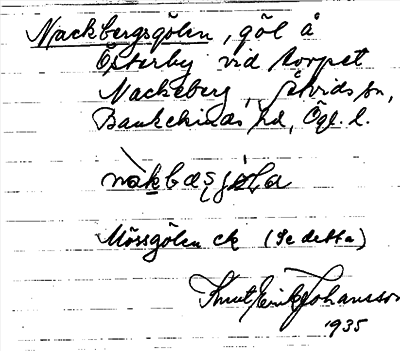 Nackbergsgölen, göl å
Österby vid torpet
Nackeberg, Åtvids sn,
Bankekinds hd, Ögl. l.
Mossgölen ek (Se detta)
Knut Erik Johansson
1935